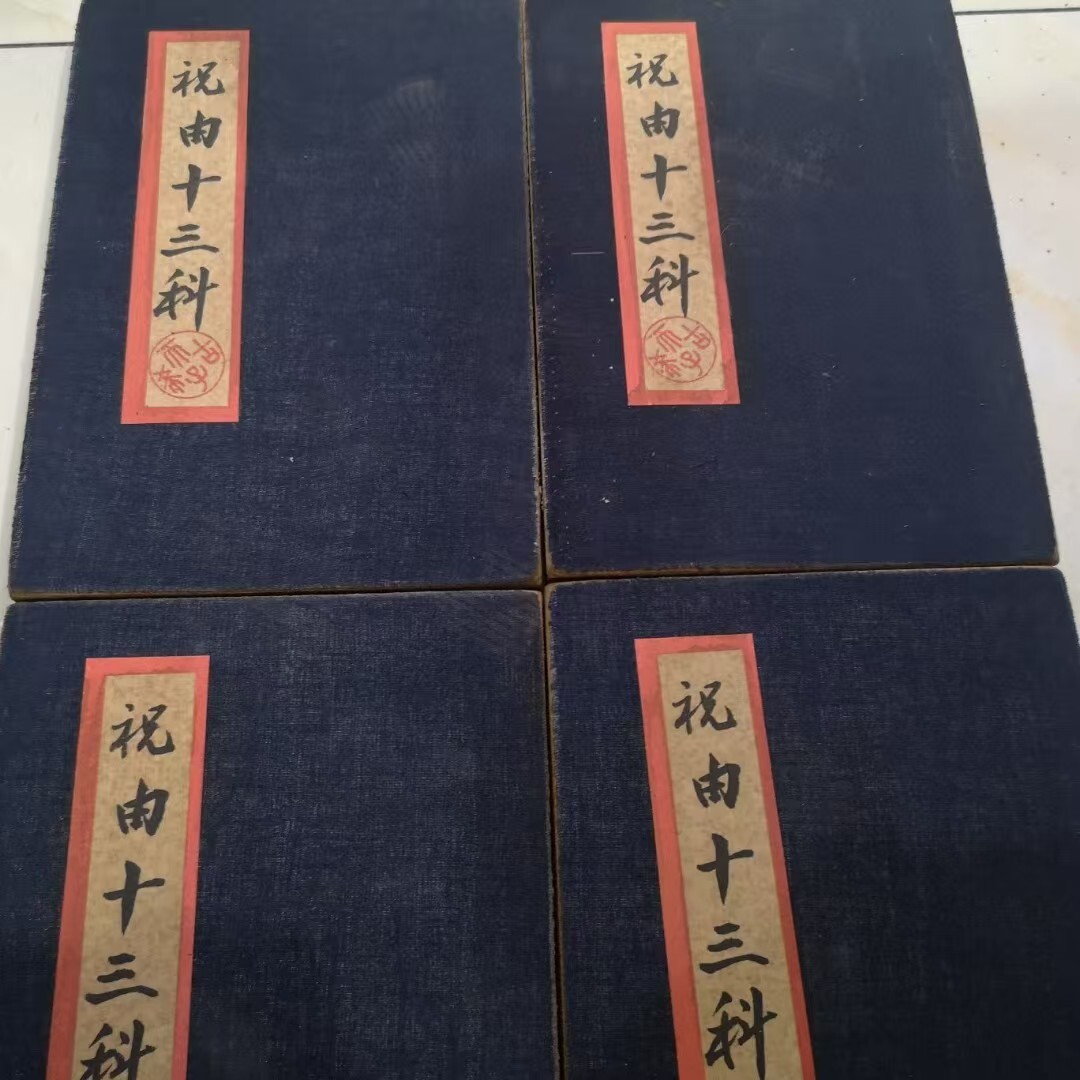 祝由十三科
祝由十三科
祝由十三科
祝由十三科